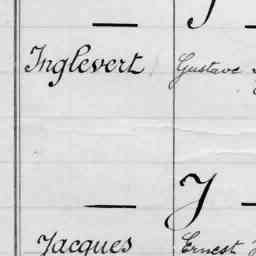 Inglevert Gustave
J
Jacques Ernest